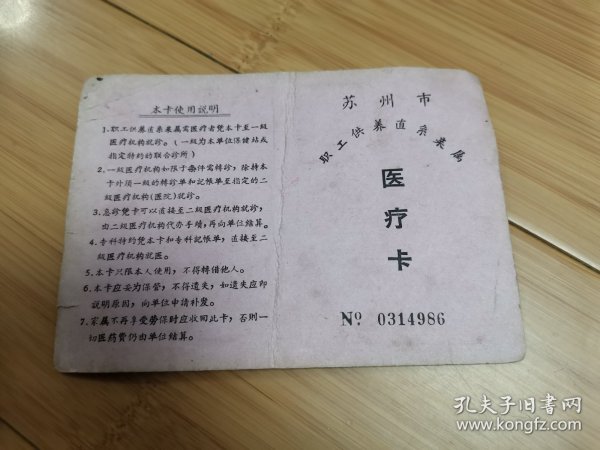 本卡使用说明
1、职工供养直系亲属需医疗者凭本卡至一级
医疗机构就诊。(一级为本单位保健站或
指定特约的联合诊所)
2、一级医疗机构如限于条件需转诊,除持本
卡外须一级的转诊单和記帐单至指定的二
级医疗机构(医院)就诊。
3、急诊凭卡可以直接至二级医疗机构就诊,
由二级医疗机构代办手续,再向单位结算。
4、专科特约凭本卡和专科記帐单,直接至二
级医疗机构就医。
5、本卡只限本人使用,不得转借他人。
6、本卡应妥为保管,不得遗失,如遗失应即
说明原因,向单位申请补发。
7、家属不再享受劳保时应收回此卡,否则一
切医药费仍由单位结算。
苏州市
职工供养直系亲属
医疗卡
№ 0314986
孔夫子旧书网
www.kongfz.com